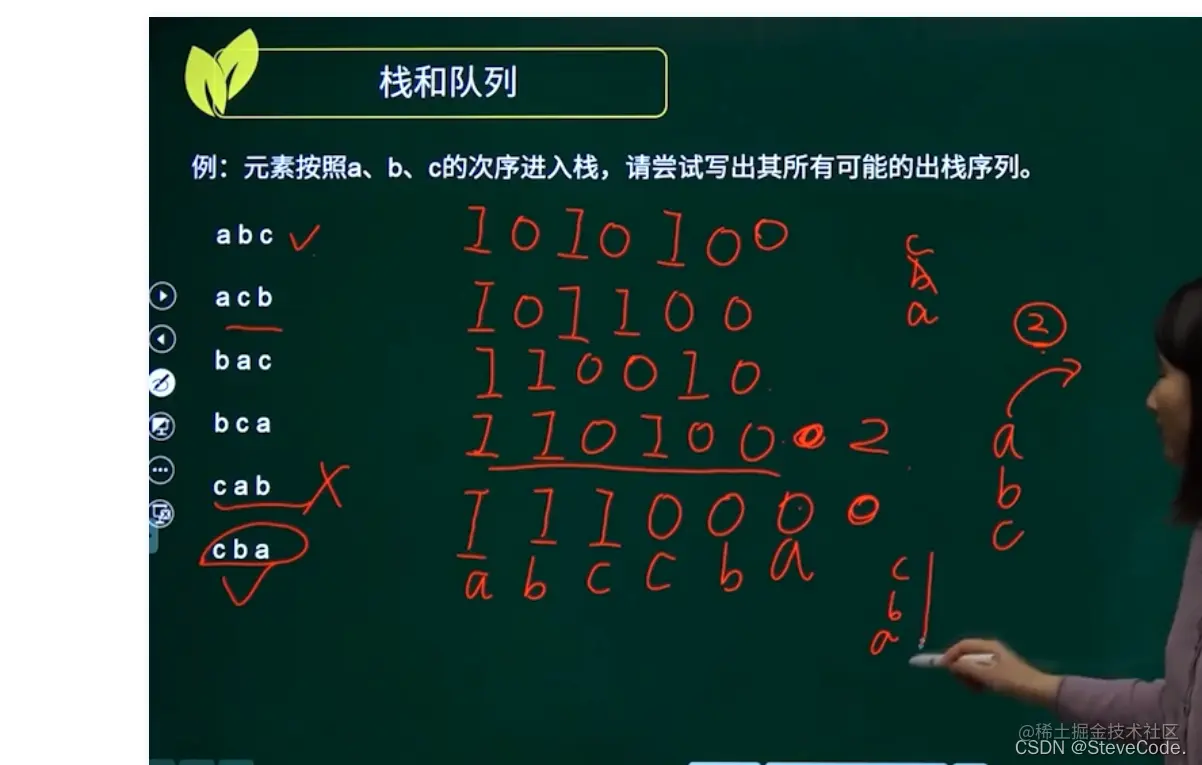 栈和队列
例：元素按照a、b、c的次序进入栈，请尝试写出其所有可能的出栈序列。
abc ✓ 1 0 1 0 1 0 0
c
b
a
acb 1 0 1 1 0 0
②
bac 1 1 0 0 1 0
bca 1 1 0 1 0 0 0 2
a
b
c
cab X 1 1 1 0 0 0 0
cba ✓ a b c c b a
c
b
a
@稀土掘金技术社区
CSDN @SteveCode.